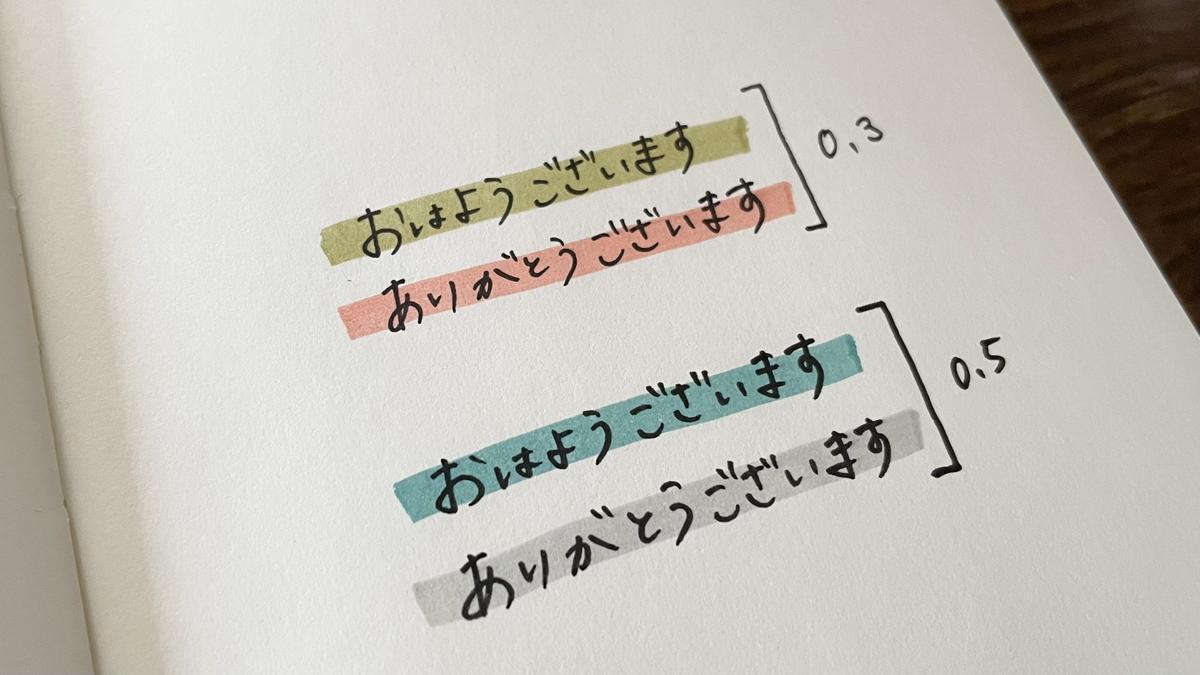 おはようございます
ありがとうございます
0.3
おはようございます
ありがとうございます
0.5